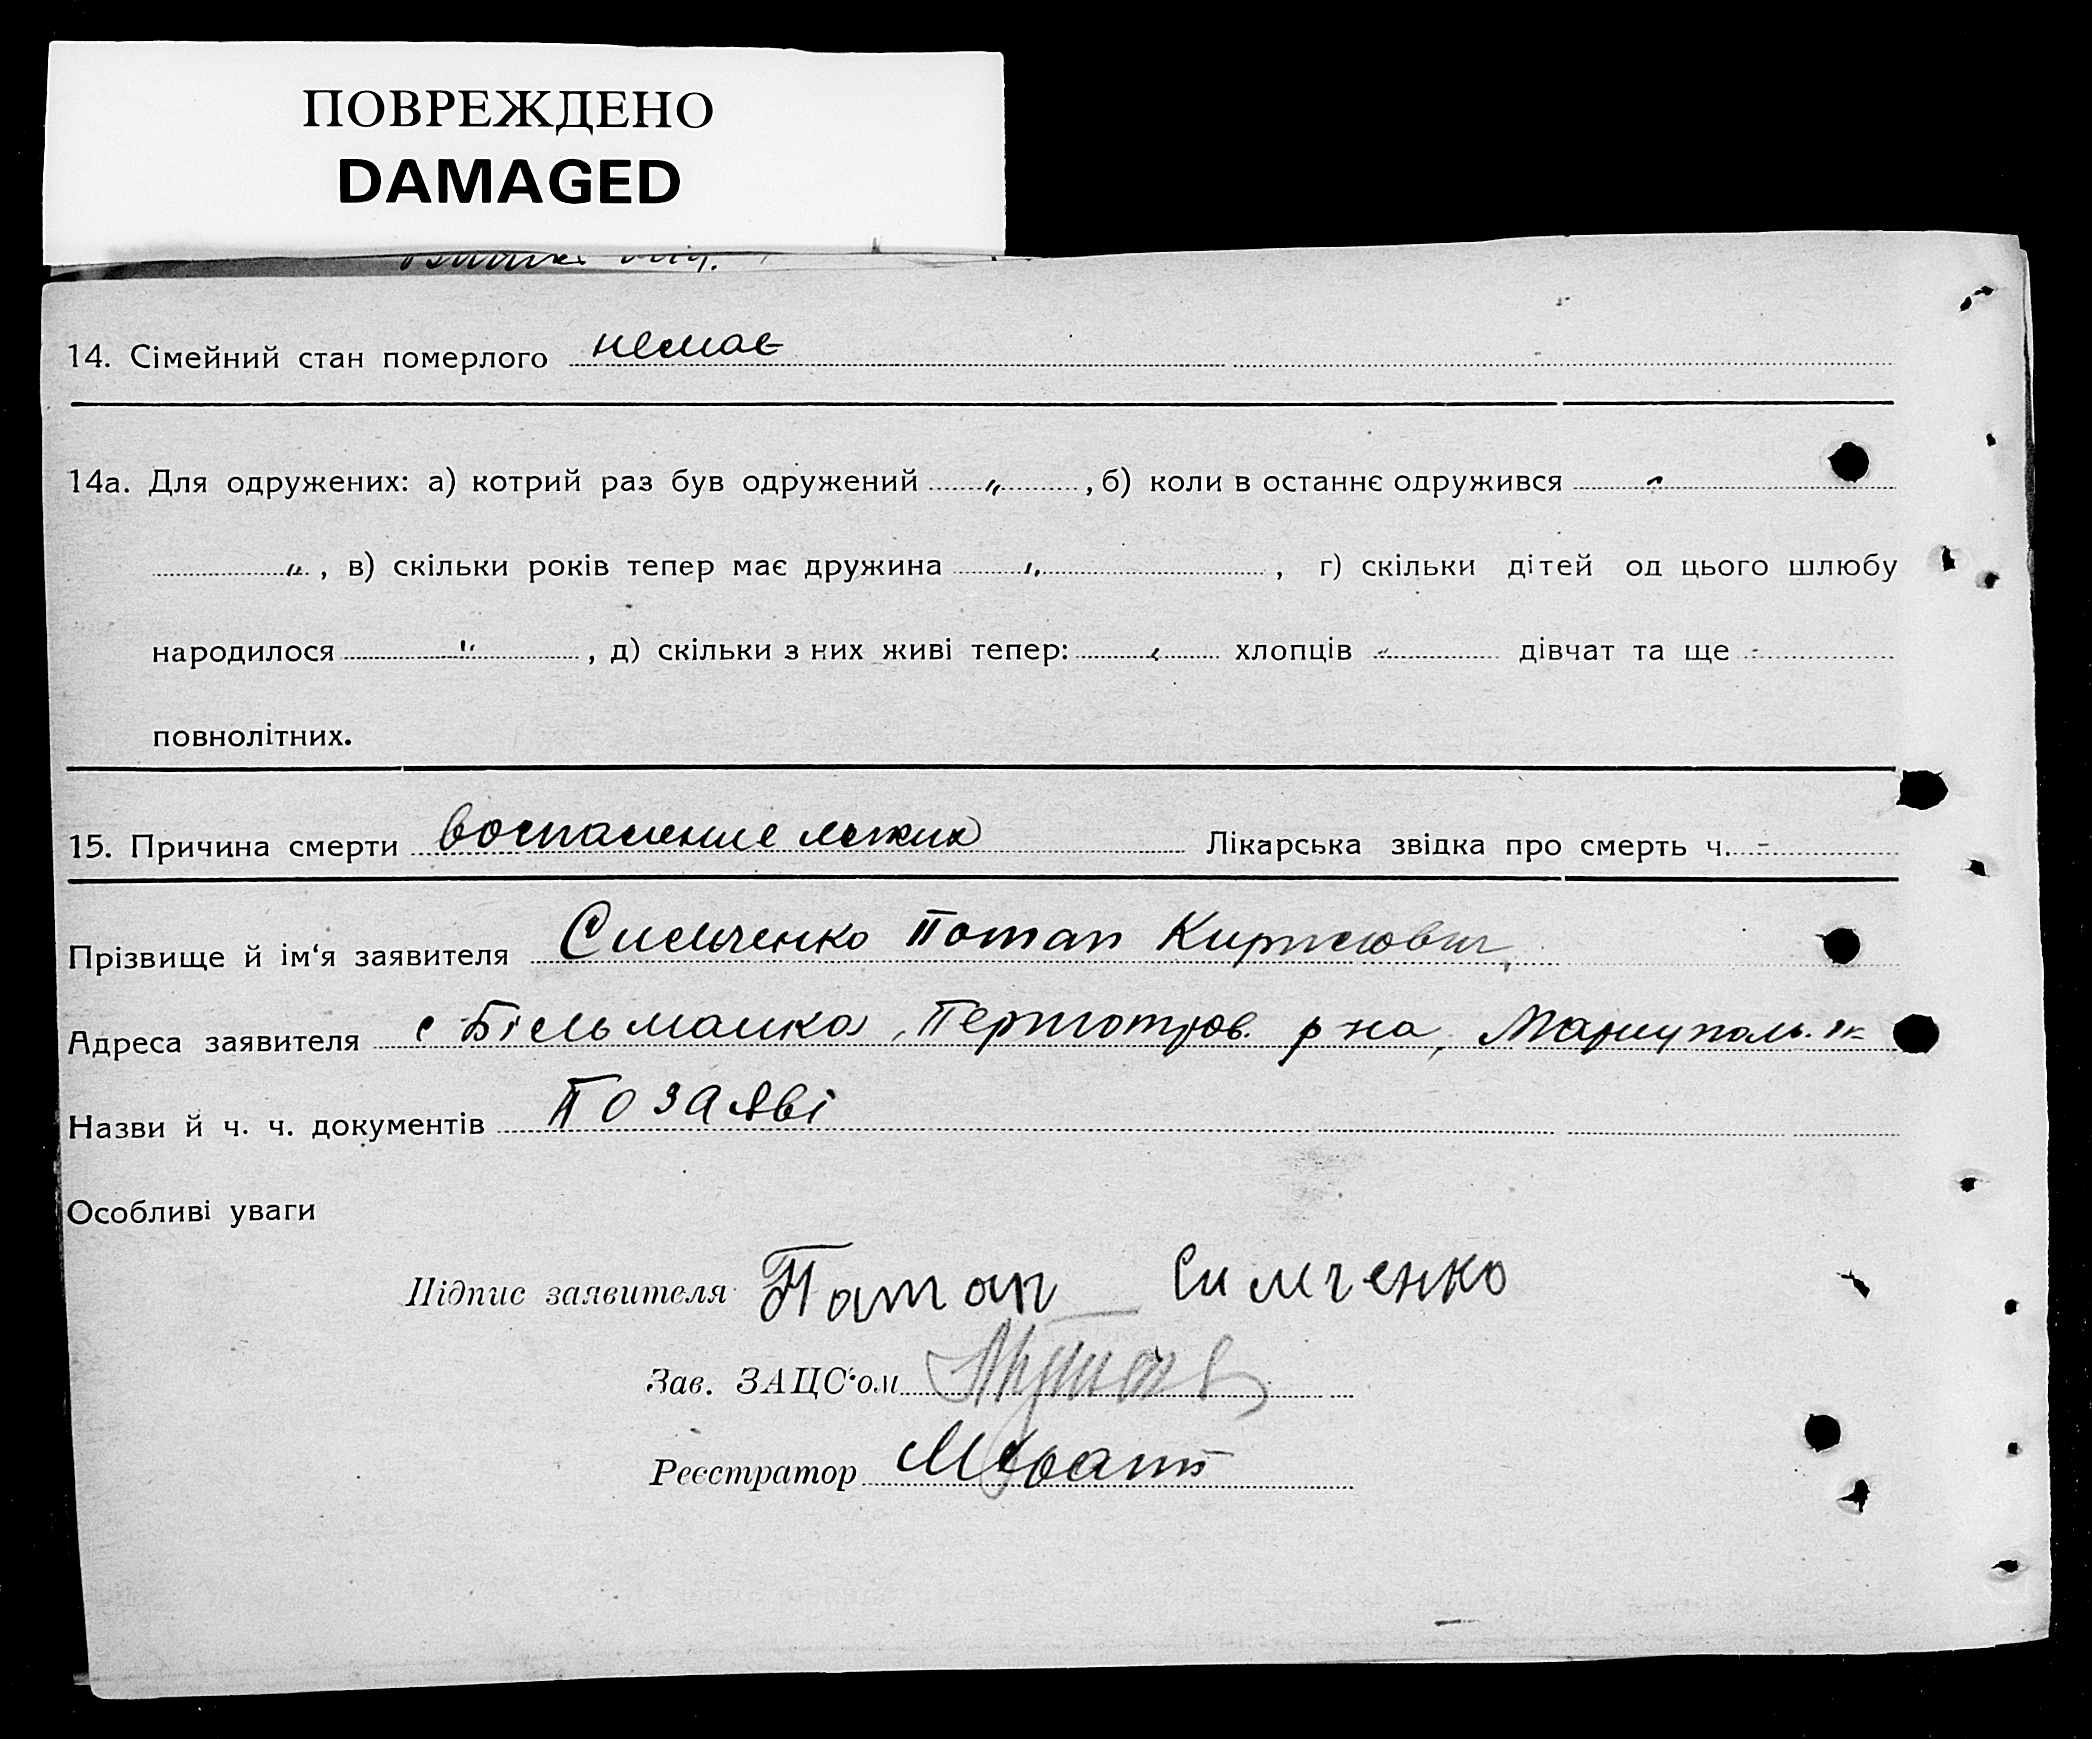 ПОВРЕЖДЕНО
DAMAGED
14. Сімейний стан померлого немає
14а. Для одружених: а) котрий раз був одружений „ , б) коли в останнє одружився „
„ , в) скільки років тепер має дружина „ , г) скільки дітей од цього шлюбу
народилося „ , д) скільки з них живі тепер: „ хлопців „ дівчат та ще -
повнолітних.
15. Причина смерти воспаление легких Лікарська звідка про смерть ч. -
Прізвище й ім‘я заявителя Симченко Потап
Адреса заявителя с Більманка, р-на, Мариуполь.
Назви й ч. ч. документів По заяві
Особливі уваги
Підпис заявителя Патап Симченко
Зав. ЗАЦС‘ом
Реєстратор